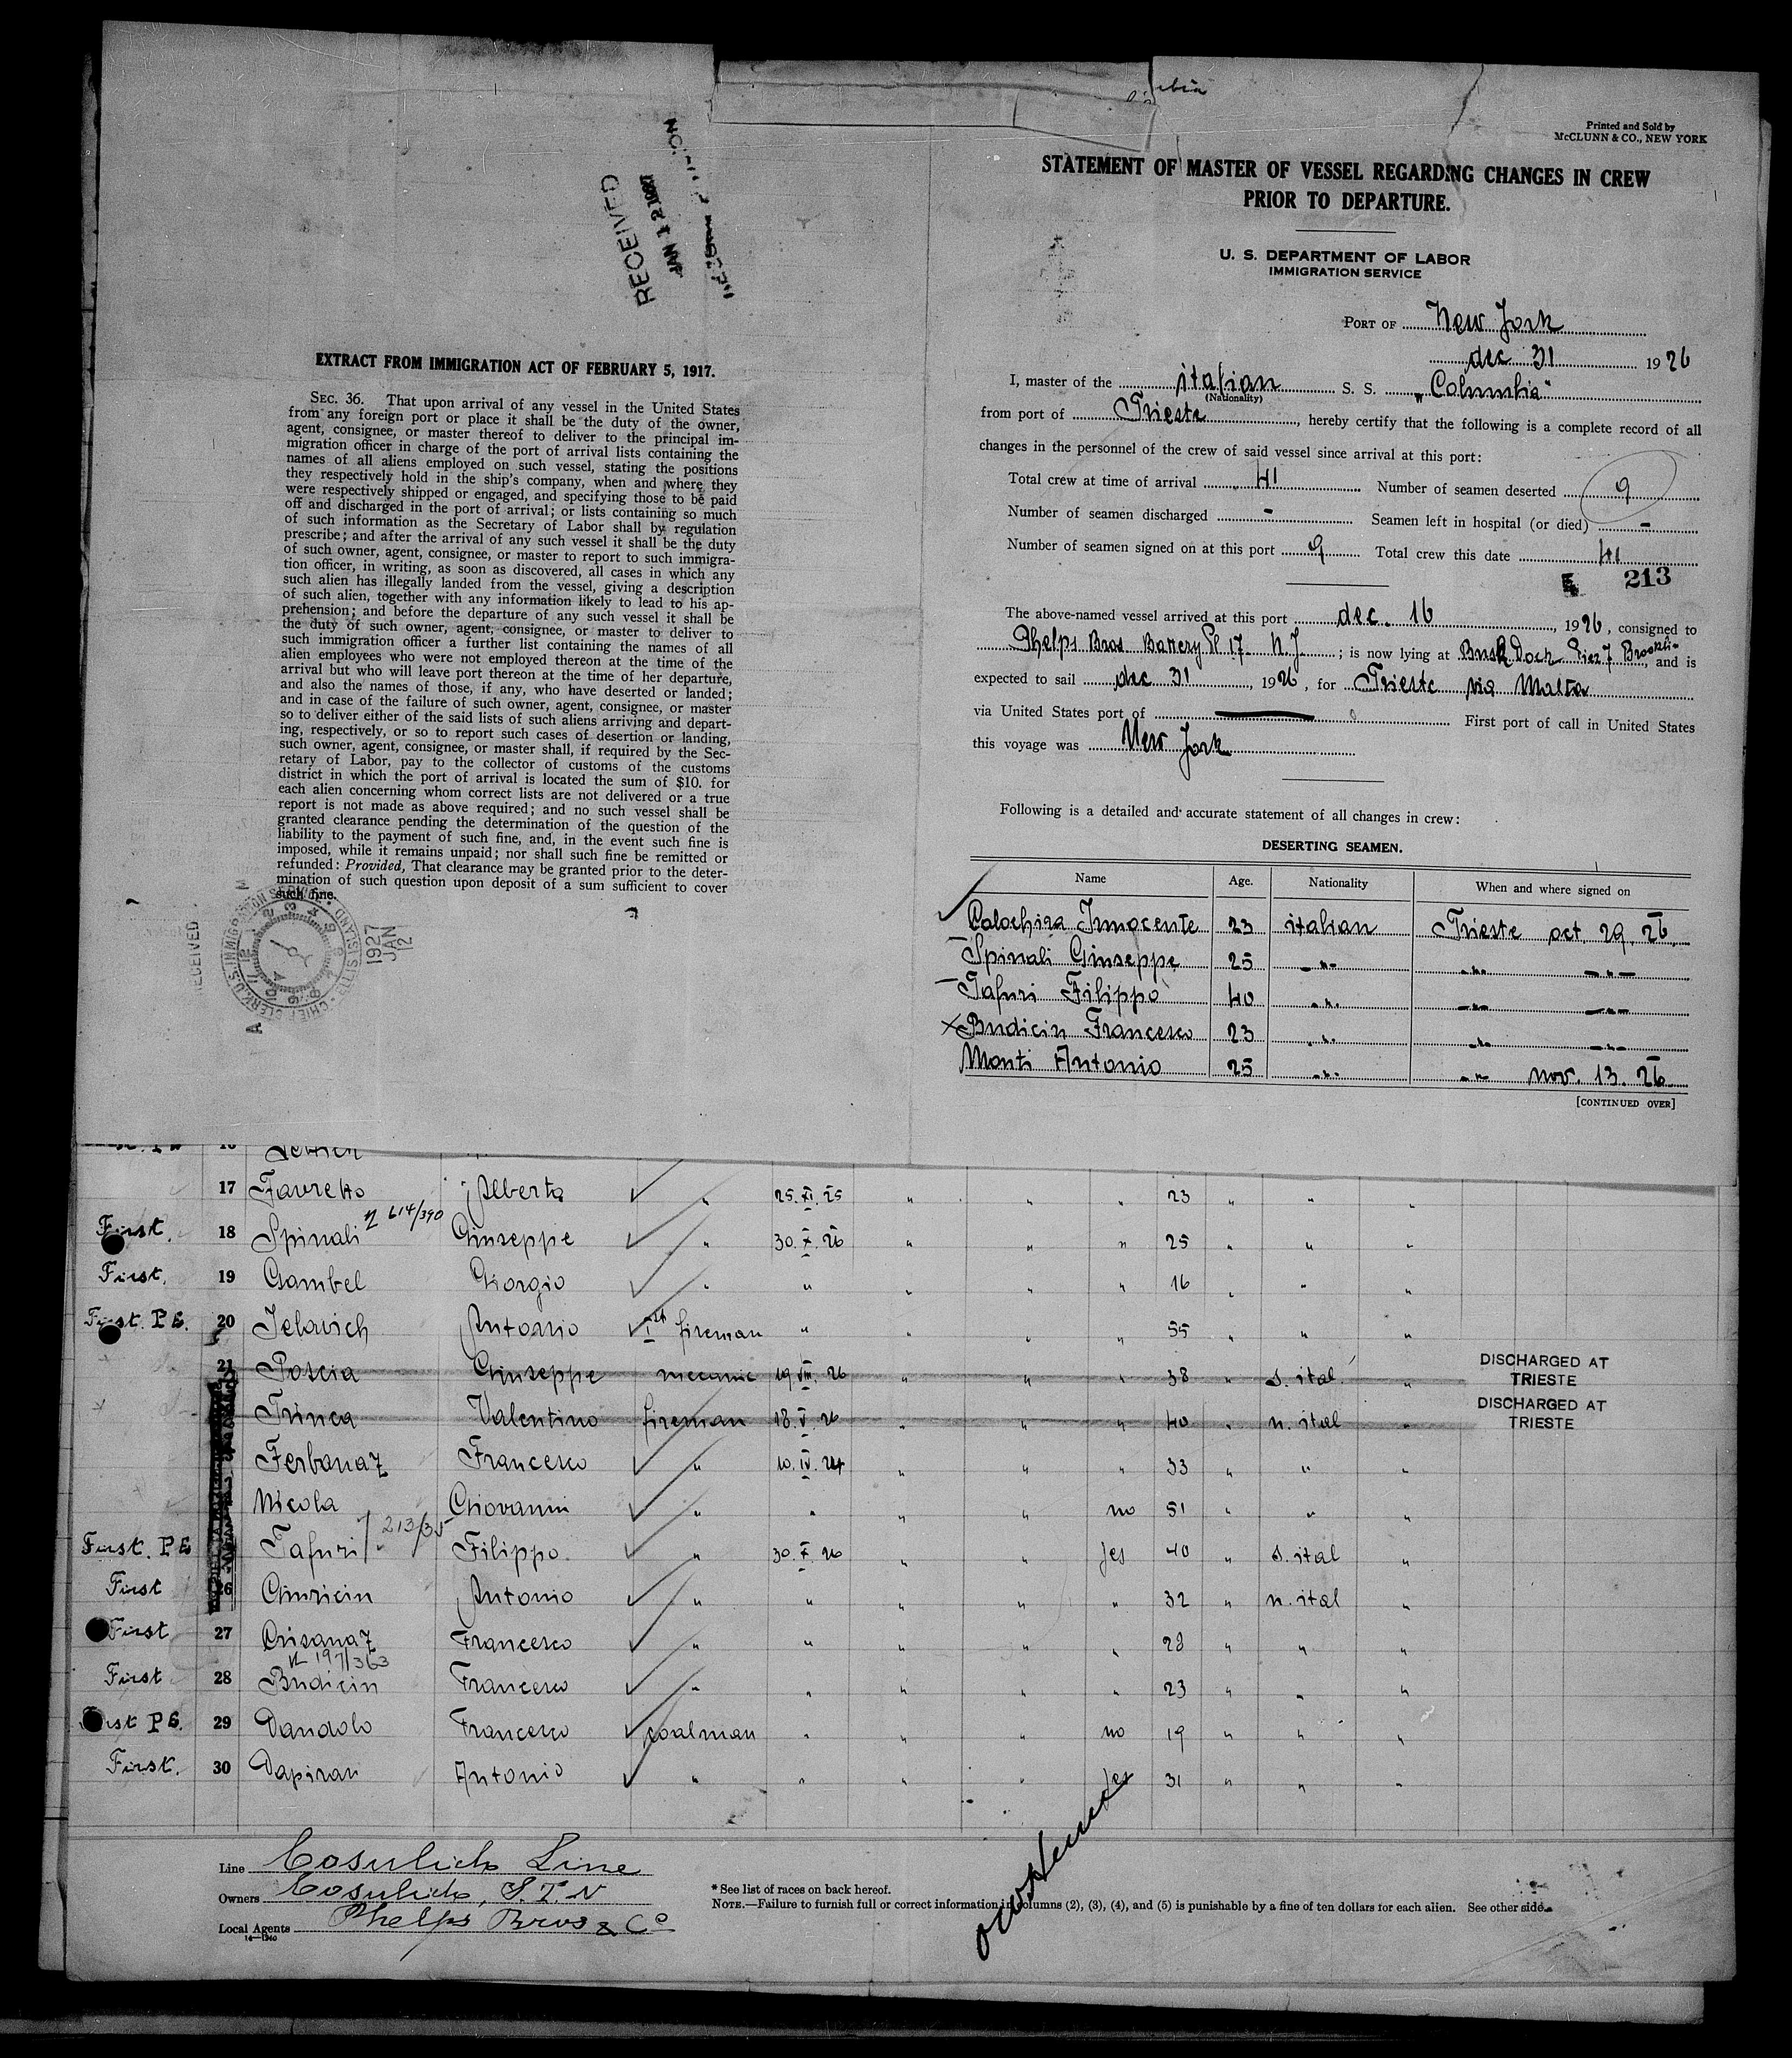 Printed and Sold by
McCLUNN & CO., NEW YORK
STATEMENT OF MASTER OF VESSEL REGARDING CHANGES IN CREW
PRIOR TO DEPARTURE.
U. S. DEPARTMENT OF LABOR
IMMIGRATION SERVICE
PORT OF New York
dec 31 1926
I, master of the italian S. S. "Columbia"
(Nationality)
from port of Trieste, hereby certify that the following is a complete record of all
changes in the personnel of the crew of said vessel since arrival at this port:
Total crew at time of arrival 41 Number of seamen deserted 9
Number of seamen discharged - Seamen left in hospital (or died) -
Number of seamen signed on at this port 9 Total crew this date 41
213
The above-named vessel arrived at this port dec. 16, 1926, consigned to
Phelps Bros Battery Pl. 17 N.J.; is now lying at Bush Dock Pier 7 Brooklin, and is
expected to sail dec 31, 1926, for Trieste via Malta
via United States port of — First port of call in United States
this voyage was New York
Following is a detailed and accurate statement of all changes in crew:
DESERTING SEAMEN.
Name Age. Nationality When and where signed on
Calochira Innocente 23 italian Trieste oct. 29. 26
Spinali Giuseppe 25 -"- -"- -"-
Tafuri Filippo 40 -"- -"- -"-
Budicin Francesco 23 -"- -"- -"-
Monti Antonio 25 -"- -"- nov. 13. 26
[CONTINUED OVER]
RECEIVED
JAN 12 1927
EXTRACT FROM IMMIGRATION ACT OF FEBRUARY 5, 1917.
SEC. 36. That upon arrival of any vessel in the United States
from any foreign port or place it shall be the duty of the owner,
agent, consignee, or master thereof to deliver to the principal im-
migration officer in charge of the port of arrival lists containing the
names of all aliens employed on such vessel, stating the positions
they respectively hold in the ship's company, when and where they
were respectively shipped or engaged, and specifying those to be paid
off and discharged in the port of arrival; or lists containing so much
of such information as the Secretary of Labor shall by regulation
prescribe; and after the arrival of any such vessel it shall be the duty
of such owner, agent, consignee, or master to report to such immigra-
tion officer, in writing, as soon as discovered, all cases in which any
such alien has illegally landed from the vessel, giving a description
of such alien, together with any information likely to lead to his ap-
prehension; and before the departure of any such vessel it shall be
the duty of such owner, agent, consignee, or master to deliver to
such immigration officer a further list containing the names of all
alien employees who were not employed thereon at the time of the
arrival but who will leave port thereon at the time of her departure,
and also the names of those, if any, who have deserted or landed;
and in case of the failure of such owner, agent, consignee, or master
so to deliver either of the said lists of such aliens arriving and depart-
ing, respectively, or so to report such cases of desertion or landing,
such owner, agent, consignee, or master shall, if required by the Sec-
retary of Labor, pay to the collector of customs of the customs
district in which the port of arrival is located the sum of $10. for
each alien concerning whom correct lists are not delivered or a true
report is not made as above required; and no such vessel shall be
granted clearance pending the determination of the question of the
liability to the payment of such fine, and, in the event such fine is
imposed, while it remains unpaid; nor shall such fine be remitted or
refunded: Provided, That clearance may be granted prior to the deter-
mination of such question upon deposit of a sum sufficient to cover
such fine.
RECEIVED
1927
JAN
12
17 Favretto Alberto " 25.XI.25 " " " 23 " " "
614/390
First. 18 Spinali Giuseppe " 30.X.26 " " " 25 " " "
First. 19 Gambel Giorgio " " " " " 16 " " "
First. P.E. 20 Jelavich Antonio Ist fireman " " " " 55 " " "
21 Poscia Giuseppe mecanic 19.VIII.26 " " " 38 " s. ital " DISCHARGED AT
TRIESTE
Trinca Valentino fireman 18.V.26 " " " 40 " n. ital " DISCHARGED AT
TRIESTE
Ferbonaz Francesco " 10.IV.24 " " " 33 " " "
Nicola Giovanni " " " " no 51 " " "
213/35
First. P.E. Tafuri Filippo. " 30.X.26 " " yes 40 " s. ital "
First 26 Giuricin Antonio " " " " " 32 " n. ital "
First 27 Crisanaz Francesco " " " " " 28 " " "
197/363
First 28 Budicin Francesco " " " " " 23 " " "
First P.E. 29 Dandolo Francesco coalman " " " no 19 " " "
First. 30 Dapiran Antonio " " " " yes 31 " " "
Line Cosulich Line
Owners Cosulich, S.T.N
Local Agents Phelps Bros & Co
14—1240
* See list of races on back hereof.
NOTE.—Failure to furnish full or correct information in columns (2), (3), (4), and (5) is punishable by a fine of ten dollars for each alien. See other side.